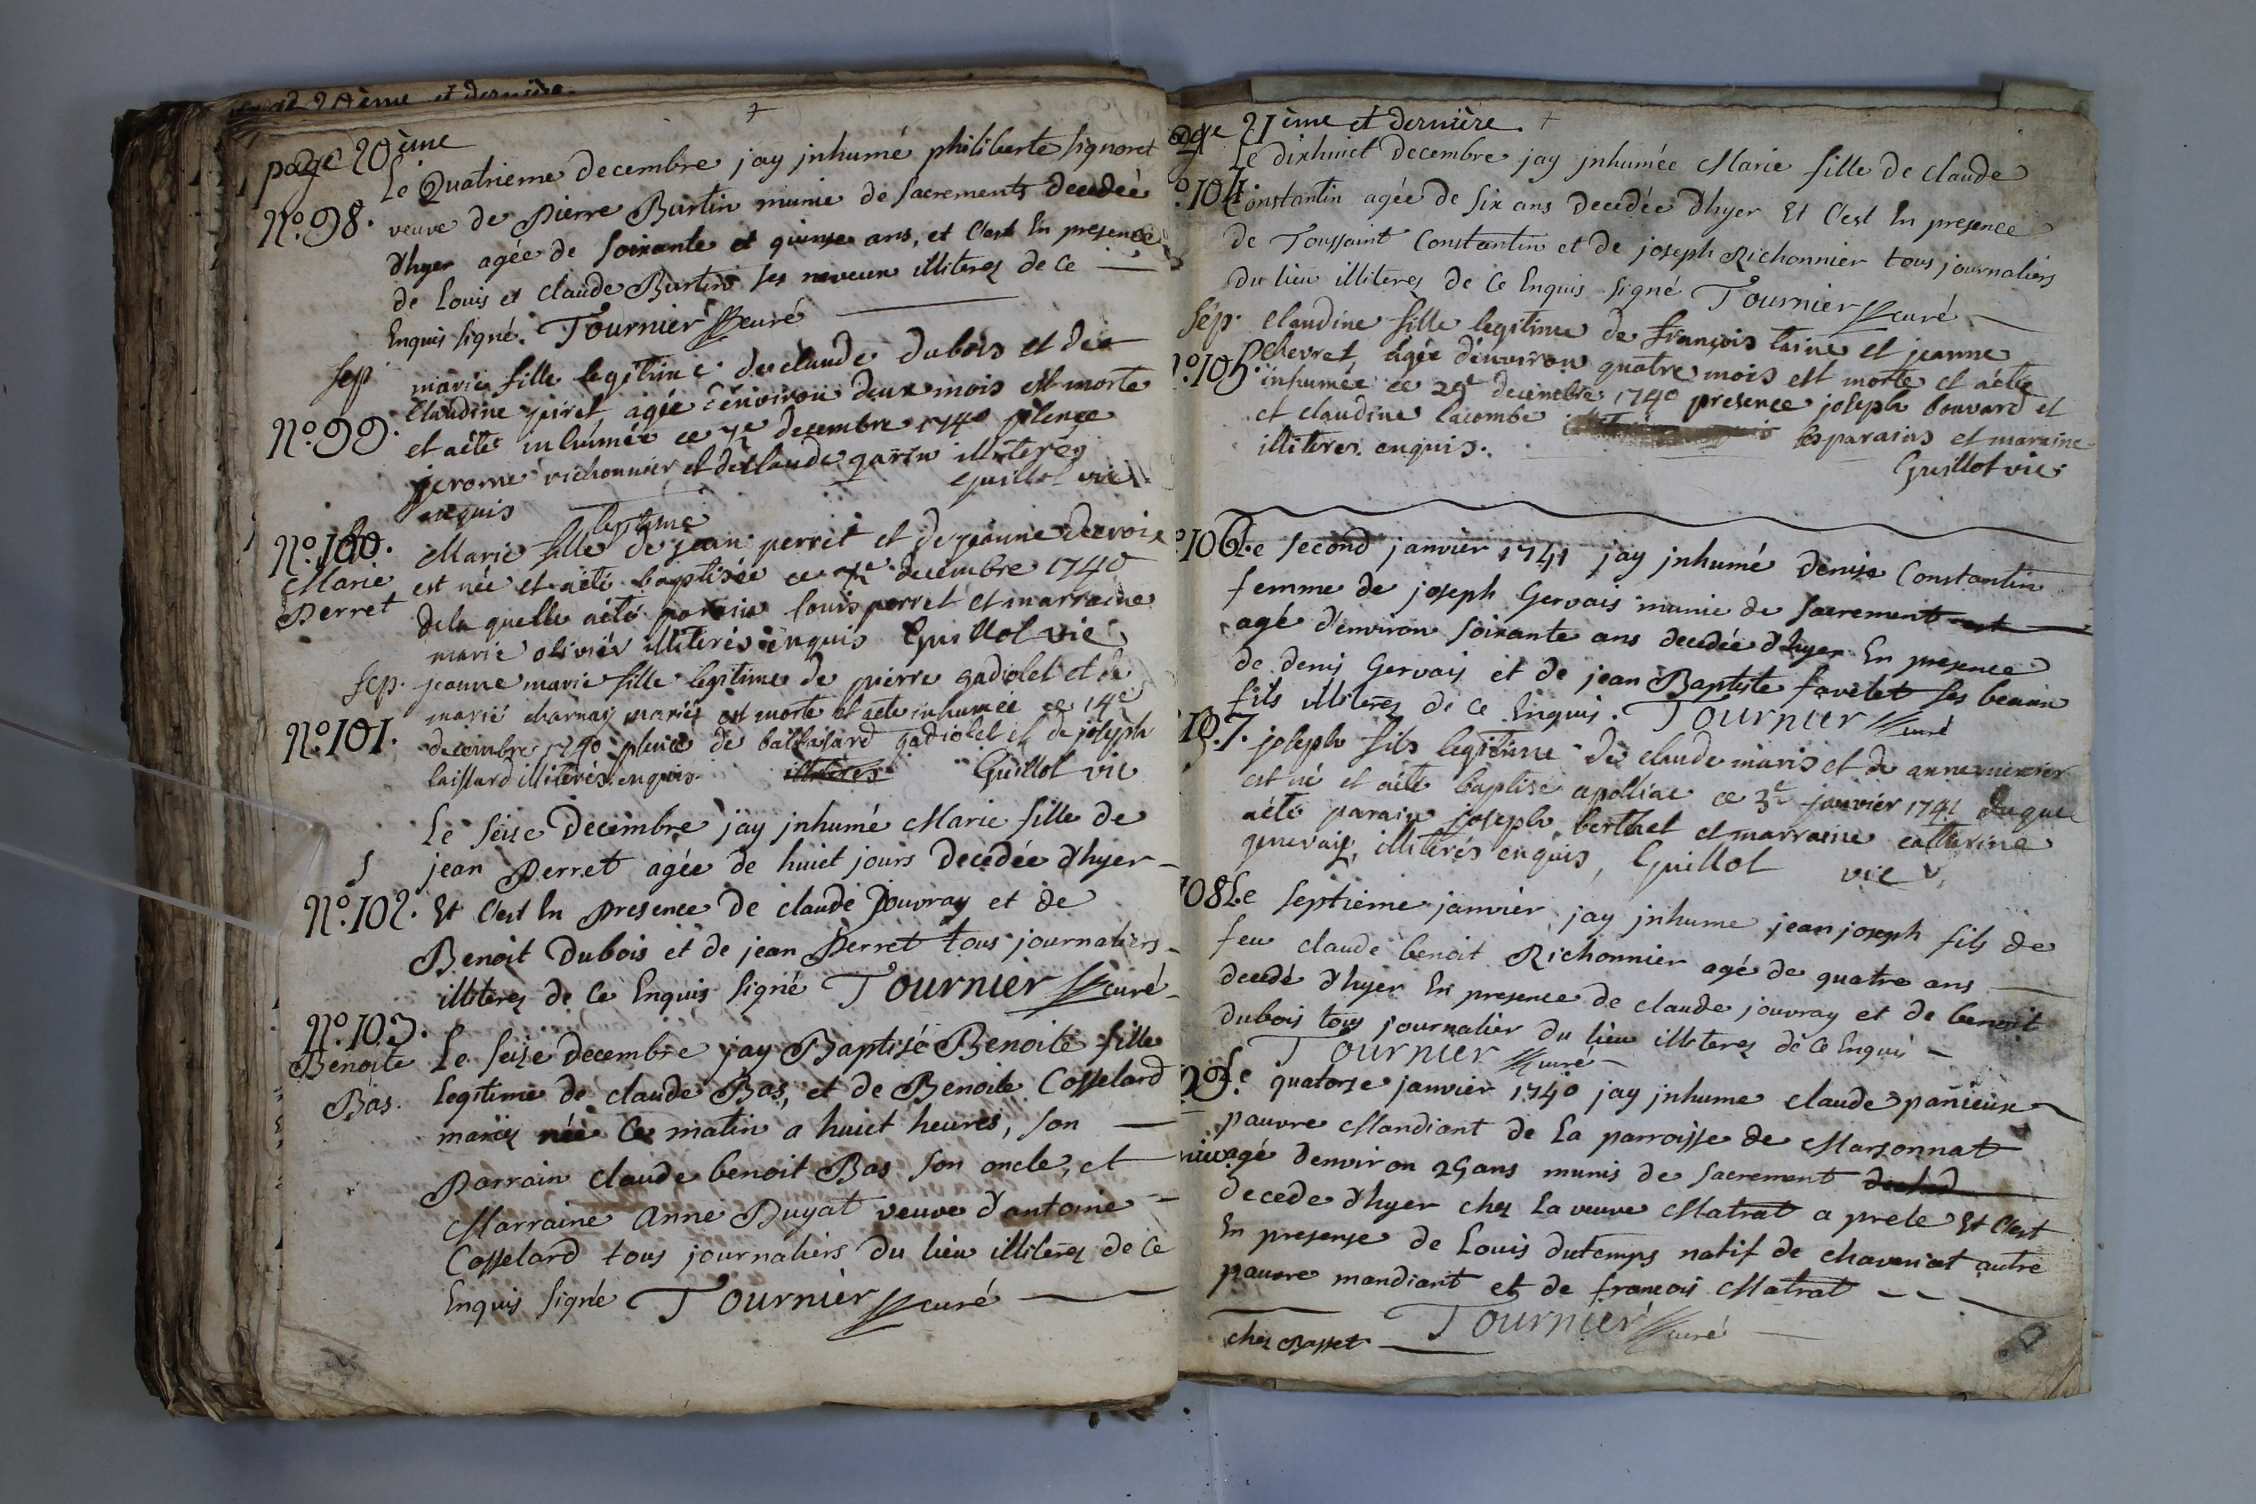 page 20ème
Le Quatrieme decembre jay jnhumé philiberte signoret
N.º 98. veuve de Pierre Burtin munie de sacrements decedeé
d'hyer agée de soixante et quinse ans, et C'est En presence
de Louis et claude Burtin ses neveux illiterez de ce
Enquis signé. Tournier curé
sep marie fille legitime de claude dubois et de
N.º 99. claudine piret agée denviron deux mois est morte
et aété inhumée ce 7e decembre 1740 pñence
jerome richonnier et de claude garin illiteres
enquis Guillot vic
N.º 100. Marie fille legitime de jean perret et de jeanne decroix
Marie est née et aété baptisée ce 7e decembre 1740
Perret de la quelle aété parain louis perret et marraine
marie olivier illiterés enquis Guillot vic
sep. jeanne marie fille legitime de pierre gadiolet et de
N.º 101. marie charnay mariés est morte et aété inhumée ce 14e
decembre 1740 pñence de baltasard gadiolet et de joseph
laissard illiterés enquis illiteres Guillot vic
Le seise Decembre jay jnhumé Marie fille de
S jean Perret agée de huict jours decedée d'hyer
N.º 102. Et C'est En presence de claude Jouvray et de
Benoit Dubois et de jean Perret tous journaliers
illiterez de ce Enquis signé Tournier curé
N.º 103.
Benoite Le seise decembre jay Baptisé Benoite fille
Bas. Legitime de claude Bas, et de Benoite Cosselard
mariez née Ce matin a huict heures, son
Parrain claude benoit Bas son oncle, et
Marraine Anne Buyat veuve d'antoine
Cosselard tous journaliers du lieu illiterez de ce
Enquis signé Tournier curé
page 21ème et dernière.
Le dixhuict decembre jay jnhumée Marie fille de claude
º. 104 Constantin agée de six ans decedée d'hyer Et C'est En presence
de Toussaint Constantin et de joseph Richonnier tous journaliers
du lieu illiterez de Ce Enquis signé Tournier curé
sép. claudine fille legitime de françois taine et jeanne
º. 105. chevret agée denviron quatre mois est morte et aété
inhumée ce decembre 1740 presence joseph bouvard et
et claudine lacombe ses parains et maraine
illiteres enquis. Guillot vic.
º 106 Le second janvier 1741 jay jnhumé denise Constantin
femme de joseph Gervais munie de sacrement
agé d'environ soixante ans decedée d'hyer En presence
de denis Gervais et de jean Baptiste favelet ses beaux
fils illiterez de ce Enquis. Tournier curé
107. joseph fils legitime de claude maris et de anne
est né et aété baptisé apolliat ce 3e janvier 1741 duquel
aété parain joseph berthet et marraine catterine
genevais, illiterés enquis, Guillot vic
108 Le septieme janvier jay jnhume jean joseph fils de
feu claude benoit Richonnier agé de quatre ans
decedé d'hyer En presence de claude jouvray et de benoit
dubois tous journalier du lieu illiterez de ce Enquis
Tournier curé
Le quatorse janvier 1740 jay jnhume claude panieux
pauvre Mandiant de la parroisse de Marsonnat
agé denviron 25 ans munis de sacrement
decede d'hyer chez La veuve Matrat a prele Et C'est
En presense de Louis dutemps natif de chaveriat autre
pauvre mandiant et de françois Matrat
Tournier curé
chez Basset